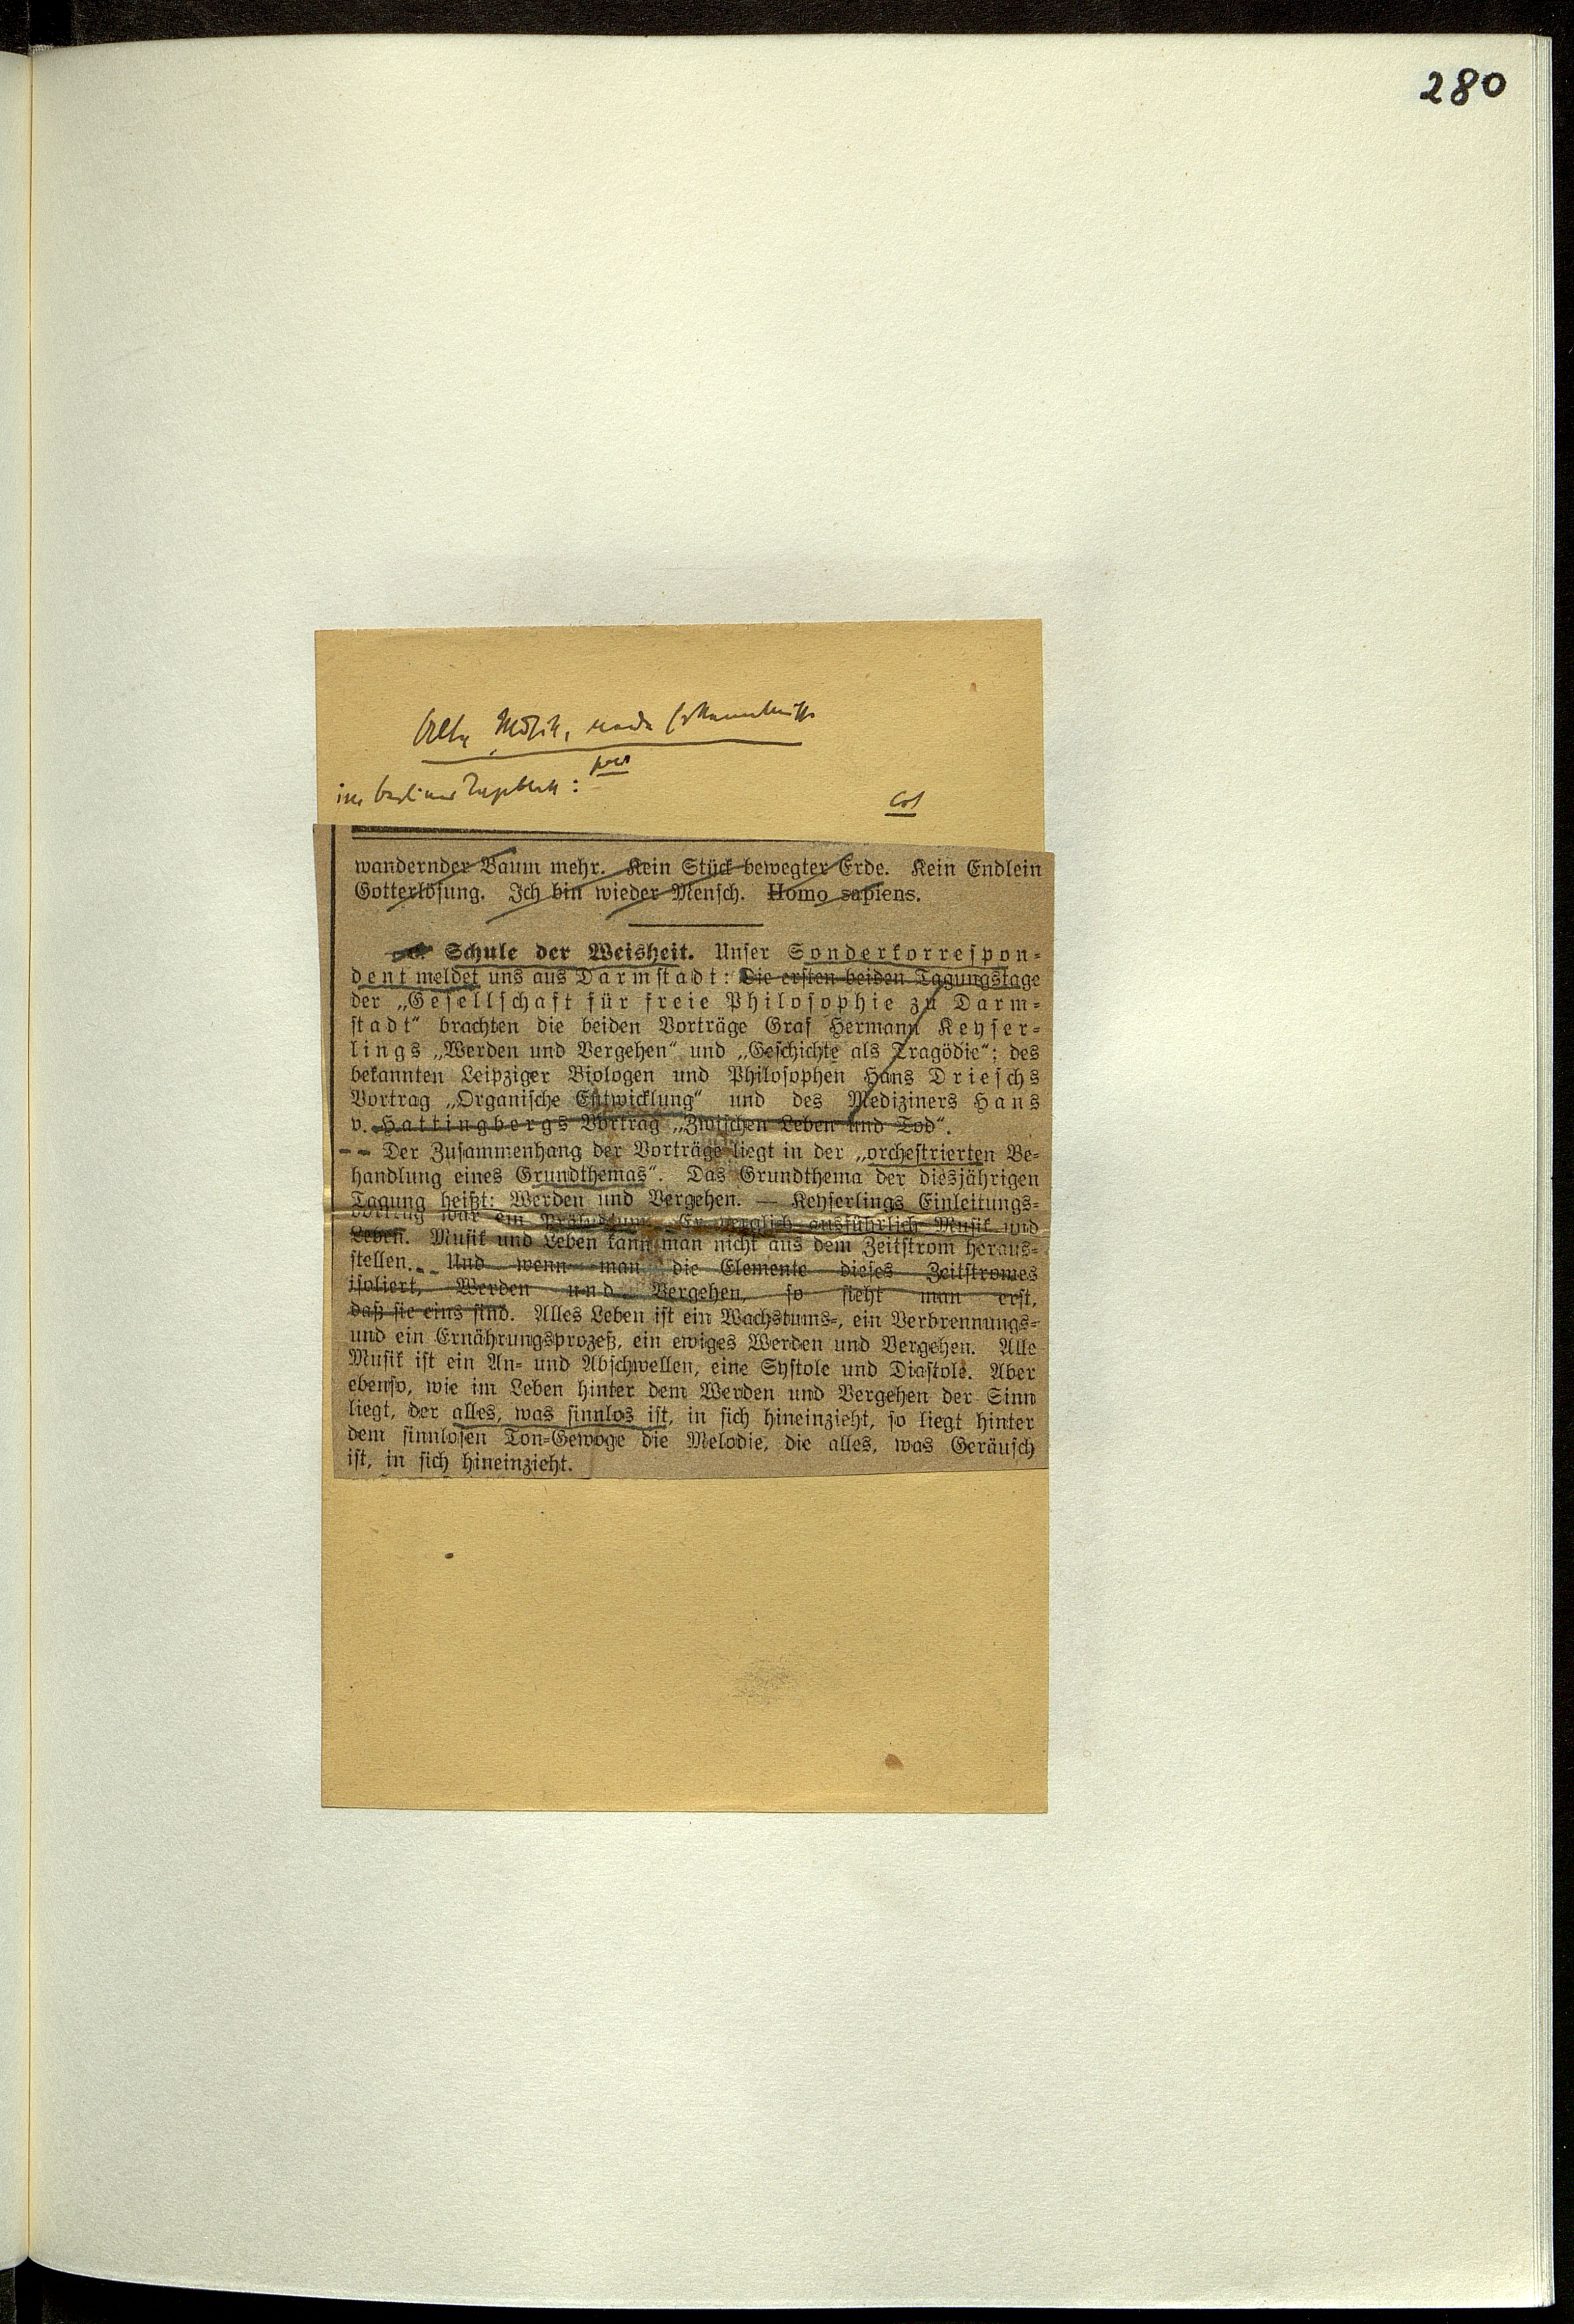 280
im Berliner Tageblatt:
wandernder Baum mehr. Kein Stück bewegter Erde. Kein Endlein
Gotterlösung. Ich bin wieder Mensch. Homo sapiens.
Schule der Weisheit. Unser Sonderkorrespon-
dent meldet uns aus Darmstadt: Die ersten beiden Tagungstage
der „Gesellschaft für freie Philosophie zu Darm-
stadt“ brachten die beiden Vorträge Graf Hermann Keyser-
lings „Werden und Vergehen“ und „Geschichte als Tragödie“; des
bekannten Leipziger Biologen und Philosophen Hans Drieschs
Vortrag „Organische Entwicklung“ und des Mediziners Hans
v. Hattingbergs Vortrag „Zwischen Leben und Tod“.
-- Der Zusammenhang der Vorträge liegt in der „orchestrierten Be-
handlung eines Grundthemas“. Das Grundthema der diesjährigen
Tagung heißt: Werden und Vergehen. — Keyserlings Einleitungs-
vortrag war ein Präludium. Er verglich ausführlich Musik und
Leben. Musik und Leben kann man nicht aus dem Zeitstrom heraus-
stellen. Und wenn man die Elemente dieses Zeitstromes
isoliert, Werden und Vergehen, so sieht man erst,
daß sie eins sind. Alles Leben ist ein Wachstums-, ein Verbrennungs-
und ein Ernährungsprozeß, ein ewiges Werden und Vergehen. Alle
Musik ist ein An- und Abschwellen, eine Systole und Diastole. Aber
ebenso, wie im Leben hinter dem Werden und Vergehen der Sinn
liegt, der alles, was sinnlos ist, in sich hineinzieht, so liegt hinter
dem sinnlosen Ton-Gewoge die Melodie, die alles, was Geräusch
ist, in sich hineinzieht.